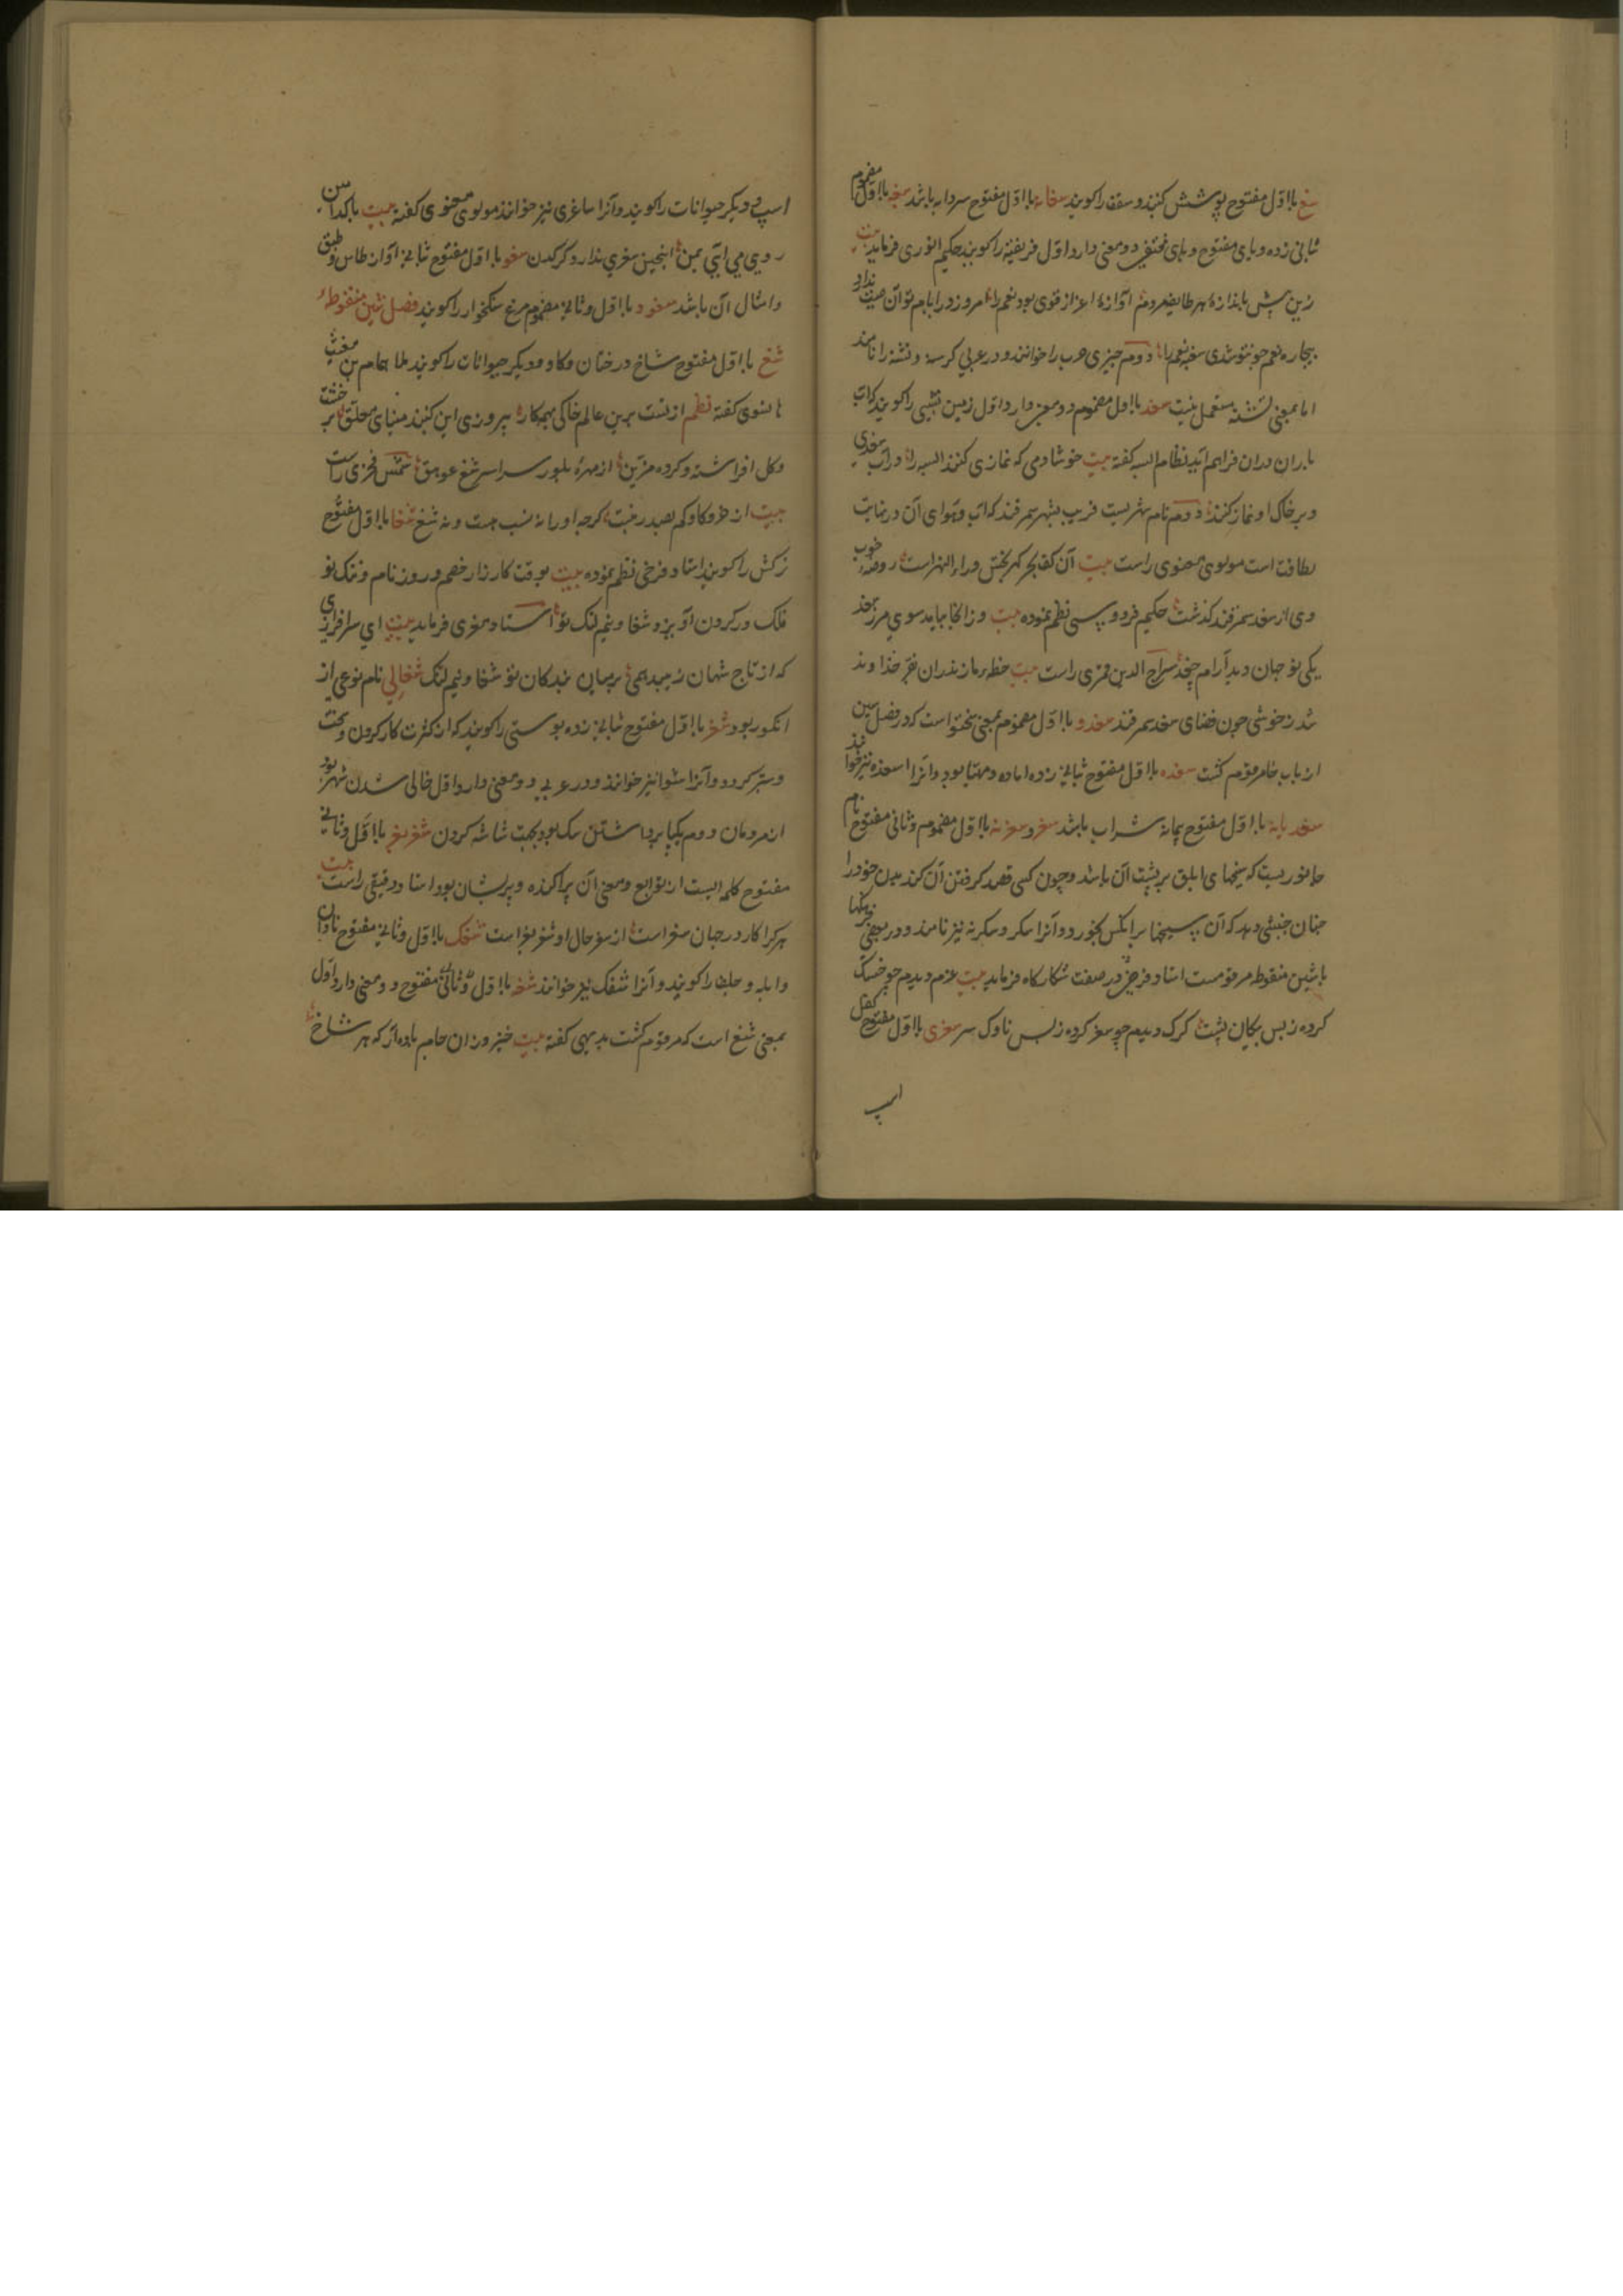 سغ با اوّل مفتوح پوشش کنبد و سقف را کویند سغانه با اوّل مفتوح سردابه باشد سغبه با اوّل مضموم
ثانی زده و بای مفتوح و های مختفی دو معنی دارد اوّل فریفته را کویند حکیم انوری فرماید بیت
زین پیش باندازهٔ هر طایفه مردم آوازهٔ اعزاز قوی بود نعم را امروز در ایام تو آن صیت ندارد
بیچاره نعم چو تو شدی سغبه نعم را دوم چیزی چرب را خوانند و در عربی کرسنه و تشنه را نامند
اما بمعنی تشنه مستعمل نیست سغد با اول مضموم دو معنی دارد اوّل زمین نشیبی را کویند که آب
باران دران فراهم آید نظام السبه کفته بیت خوشا دمی که نمازی کنند السبه را در آب سغدی
و بر خاک او نماز کنند دوم نام شهریست قریب بشهر سمرقند که آب و هوای آن در نهایت
لطافت است مولوی معنوی راست بیت آن کف بحر کهر بخش وراء النهر است روضهٔ خوب
وی از سغد سمرقند کذشت حکیم فردوسی نظم نموده بیت وز انجا بیامد سوی مرز سغد
یکی نو جهان دید آرام چغد سراج الدین قمری راست بیت خطهٔ مازندران بفرّ خداوند
شد ز خوشی چون فضای سغد سمرقند سغدو با اوّل مضموم بمعنی سختو است که در فصل سین
از باب خا مرقوم کشت سغده با اوّل مفتوح ثانی زده اماده و مهیا بود و آنرا اسغده نیز خوانند
سغدیانه با اوّل مفتوح پیمانهٔ شراب باشد سغر و سغرنه با اوّل مضموم و ثانی مفتوح نام
جانوریست که سیخهای ابلق بر پشت آن باشد و چون کسی قصد کرفتن آن کند میان خود را
چنان جنبشی دهد که آن سیخها بر انکس خورد و آنرا سکر و سکرنه نیز نامند و در بعضی فرهنکها
باشین منقوط مرقومست استاد فرخی در صفت شکارکاه فرماید بیت غرم دیدم چو خسک
کرده ز بس پیکان پشت کرک دیدم چو سغر کرده ز بس ناوک سر سغری با اوّل مفتوح کفل
اسپ
اسپ و دیکر حیوانات را کویند و آنرا ساغری نیز خوانند مولوی معنوی کفته بیت با کدامین
روی می آیی بمن اینچنین سغری ندارد کرکدن سغو با اوّل مفتوح ثانی آواز طاس و طبق
و امثال آن باشد سغود با اوّل و ثانی مضموم مرغ سنکخوار را کویند فصل شین منقوطه
شغ با اوّل مفتوح شاخ درختان و کاو و دیکر حیوانات را کویند ملا همام بن مغیث
هانسوی کفته نظم از تست برین عالم خاکی همه کاره پیروزی این کنبد مینای معلق بر خشت
و کل افراشته و کرده مزین از مهرهٔ بلور سراسر شغ عوهق شمس فخری راست
بیت کرچه او را نه نسب هست و نه شغ شغا با اوّل مفتوح
ترکش را کویند استاد فرخی نظم نموده بیت بوقت کارزار خصم و روز نام و ننک تو
فلک در کردن آویزد شغا و نیم لنک تو استاد معزی فرماید بیت ای سرافرازی
که از تاج شهان زیبد همی بر میان بندکان تو شغا و نیم لنک شغالی نام نوعی از
انکور بود شغر با اوّل مفتوح ثانی زده پوستی را کویند که از کثرت کار کردن سخت
و ستبر کردد و آنرا شوا نیز خوانند و در عربی دو معنی دارد اوّل خالی شدن شهر بود
از مردمان دوم یکپا برداشتن سک بود بجهت شاشه کردن شغر بغر با اوّل و ثانی
مفتوح کلمه ایست از توابع و معنی آن پراکنده و پریشان بود استاد دقیقی راست بیت
هر کرا کار در جهان سفر است از سفر حال او شغر بغر است شغک با اوّل و ثانی مفتوح نادان
و ابله و جلف را کویند و آنرا شفک نیز خوانند شغه با اوّل و ثانی مفتوح دو معنی دارد اوّل
بمعنی شغ است که مرقوم کشت بدیهی کفته بیت خیز و زان جام باده آر که هر شاخ